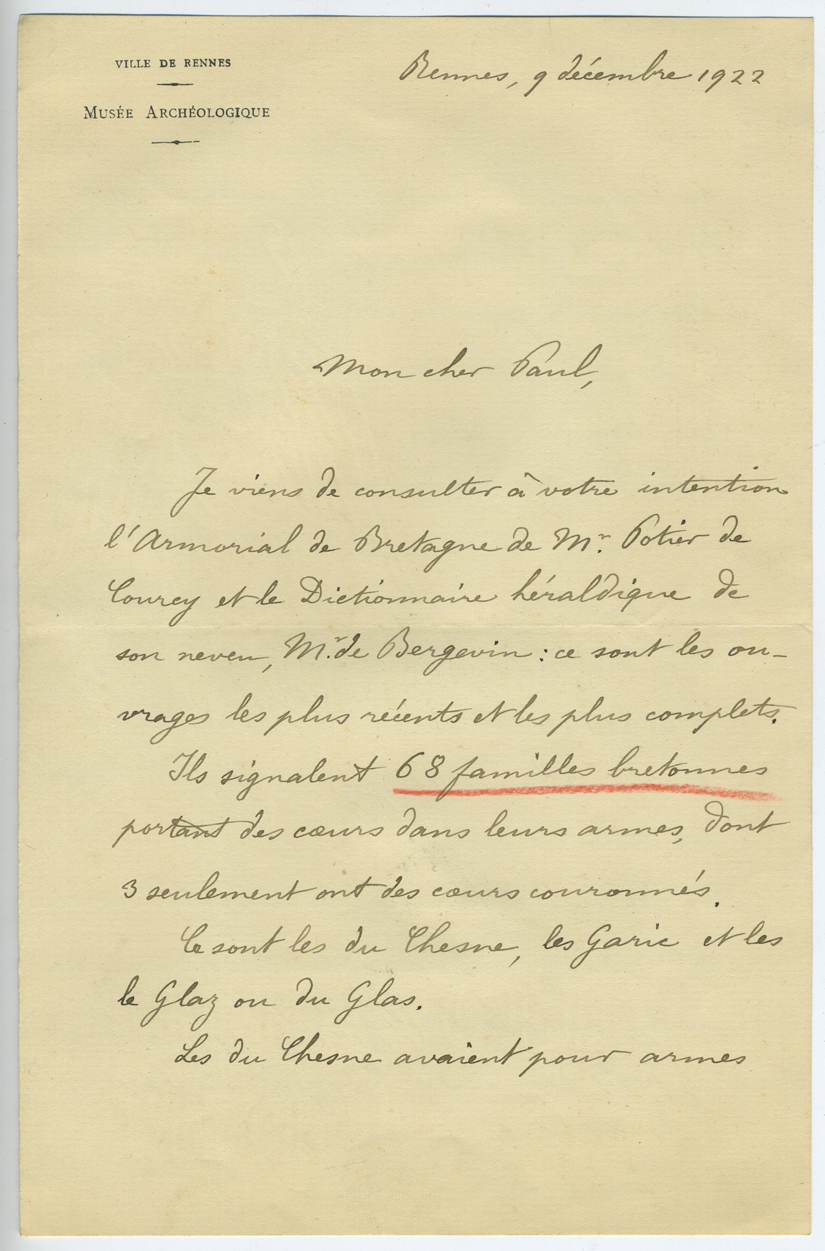 VILLE DE RENNES
MUSÉE ARCHÉOLOGIQUE
Rennes, 9 décembre 1922
Mon cher Paul,
Je viens de consulter à votre intention
l'Armorial de Bretagne de Mr. Potier de
Courcy et le Dictionnaire héraldique de
son neveu, Mr. de Bergevin : ce sont les ou-
vrages les plus récents et les plus complets.
Ils signalent 68 familles bretonnes
portant des cœurs dans leurs armes, dont
3 seulement ont des cœurs couronnés.
Ce sont les du Chesne, les Garic et les
le Glaz ou du Glas.
Les du Chesne avaient pour armes